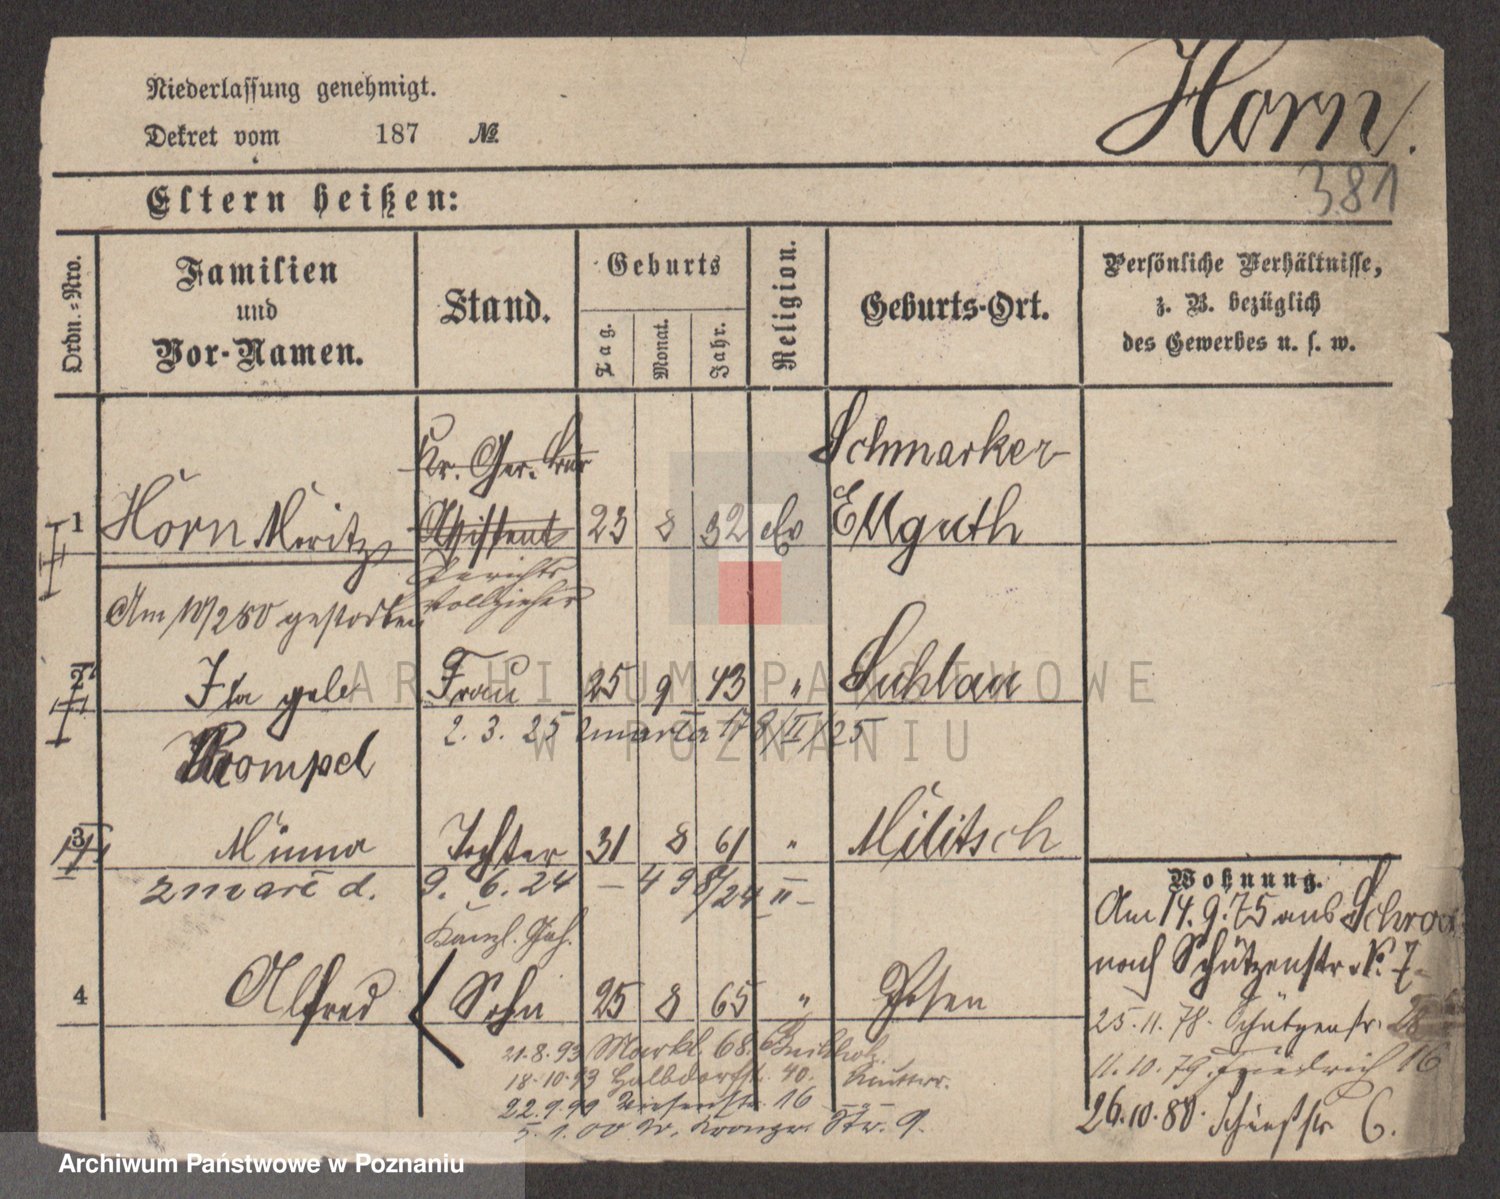 Niederlassung genehmigt.
Dekret vom 187 №
Horn.
381
Eltern heißen:
Ordn.-Nro.
Familien
und
Vor-Namen.
Stand.
Geburts
Tag.
Monat.
Jahr.
Religion.
Geburts-Ort.
Persönliche Verhältnisse,
z. B. bezüglich
des Gewerbes u. s. w.
Kr. Ger.
Schmarker
1 Horn Moritz Assistent 23 8 32 ev Ellguth
Gerichts
vollzieher
Am gestorben
2 Ida geb Frau 25 9 43 " Suhlau
2. 3. 25 zmarła 178/II/25
Rompel
3 Minna Tochter 31 8 61 " Militsch
zmarł d. 9. 6. 24 - 498/24 II -
Kanzl. Geh.
4 Alfred Sohn 25 8 65 " Posen
21.8.93 Markt 68.
18.10.93 Halbdorfstr. 40.
22.9.99 Wiesenstr. 16
5. 1. 00 Str. 9.
Wohnung.
Am 14.9.75 aus Schroda
nach Schützenstr. No. 7
25.11.78. Schützenstr. 28
11.10.79. Friedrich 16
26.10.80. 6.
ARCHIWUM PAŃSTWOWE
W POZNANIU
Archiwum Państwowe w Poznaniu